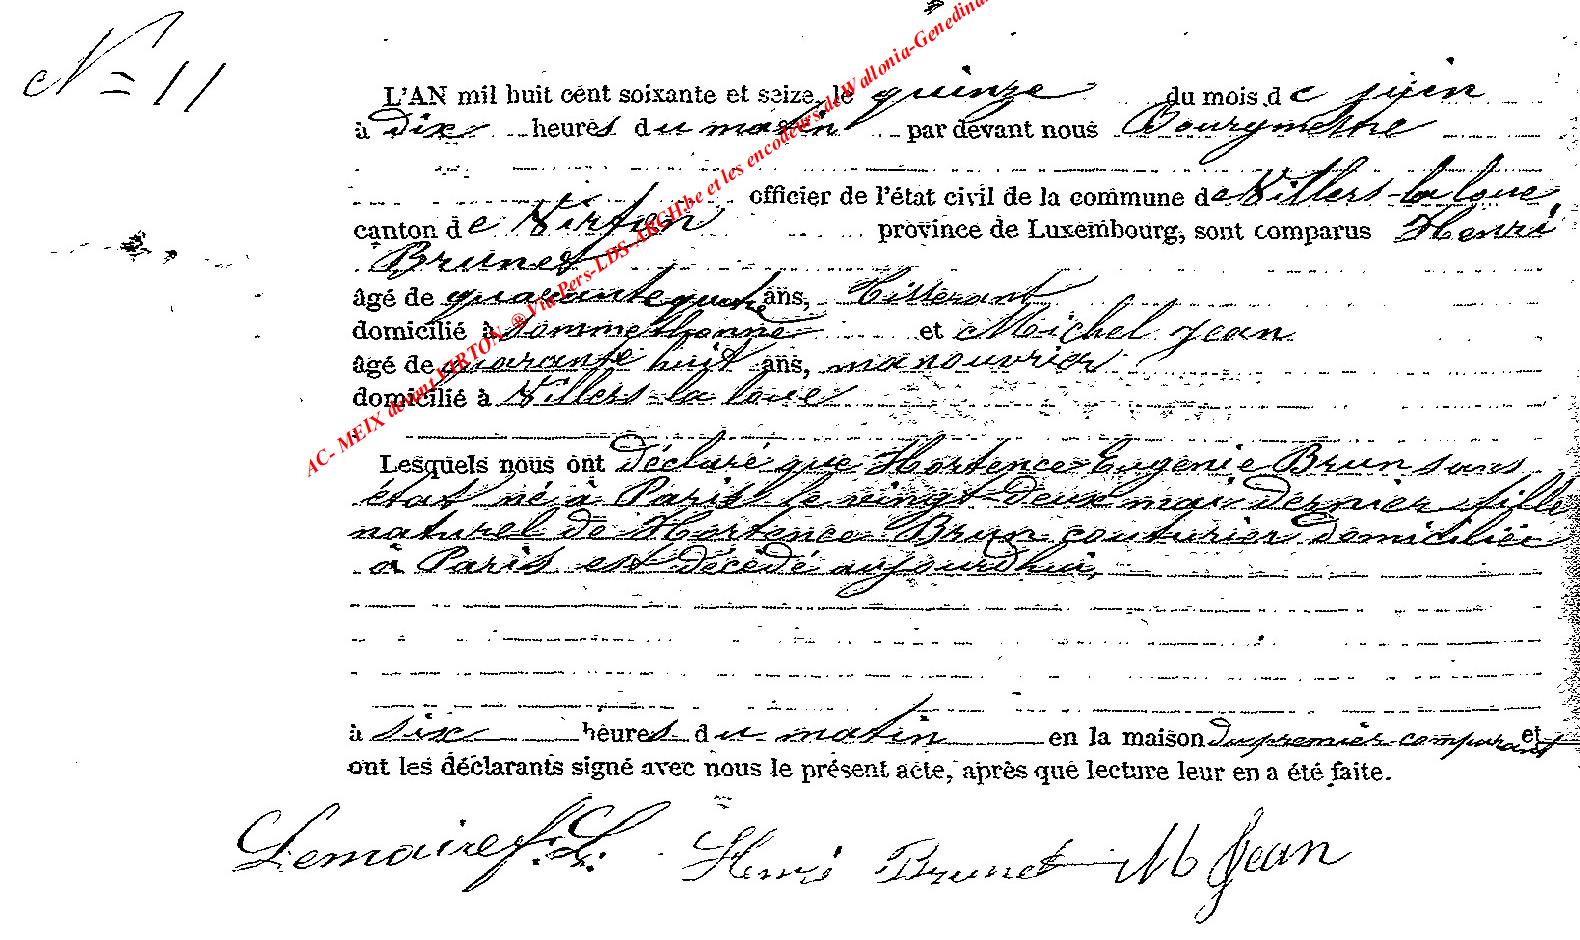 N = 11
L'AN mil huit cent soixante et seize, le quinze du mois de juin
à dix heures du matin par devant nous Bourgmestre
officier de l'état civil de la commune de Villers-la loue
canton de Virton province de Luxembourg, sont comparus Henri
Brunet
âgé de quarante quatre ans, Tisserant
domicilié à Sommethonne et Michel Jean
âgé de quarante huit ans, manouvrier
domicilié à Villers-la loue
Lesquels nous ont déclaré que Hortence Eugenie Brun sans
état né à Paris le vingt-deux mai dernier fille
naturel de Hortence Brun couturier domiciliée
à Paris est décédé aujourdhui,
à six heures du matin en la maison du premier comparant et
ont les déclarants signé avec nous le présent acte, après que lecture leur en a été faite.
Lemaire f. L. Henri Brunet M Jean
AC- MEIX devant VIRTON ® Via Pers-LDS-ARCH.be et les encodeurs de Wallonia-Genedinan